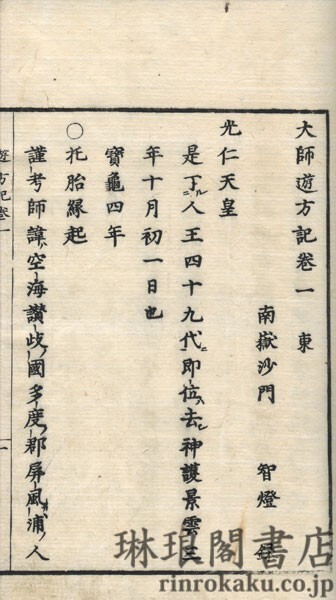 大師遊方記卷一　東
南嶽沙門　智燈
光仁天皇
是丁人王四十九代即位去神護景雲三
年十月初一日也
寶龜四年
○托胎緣起
謹考師諱空海讚岐國多度郡屏風浦人
遊方記卷一　一
琳琅閣書店
rinrokaku.co.jp